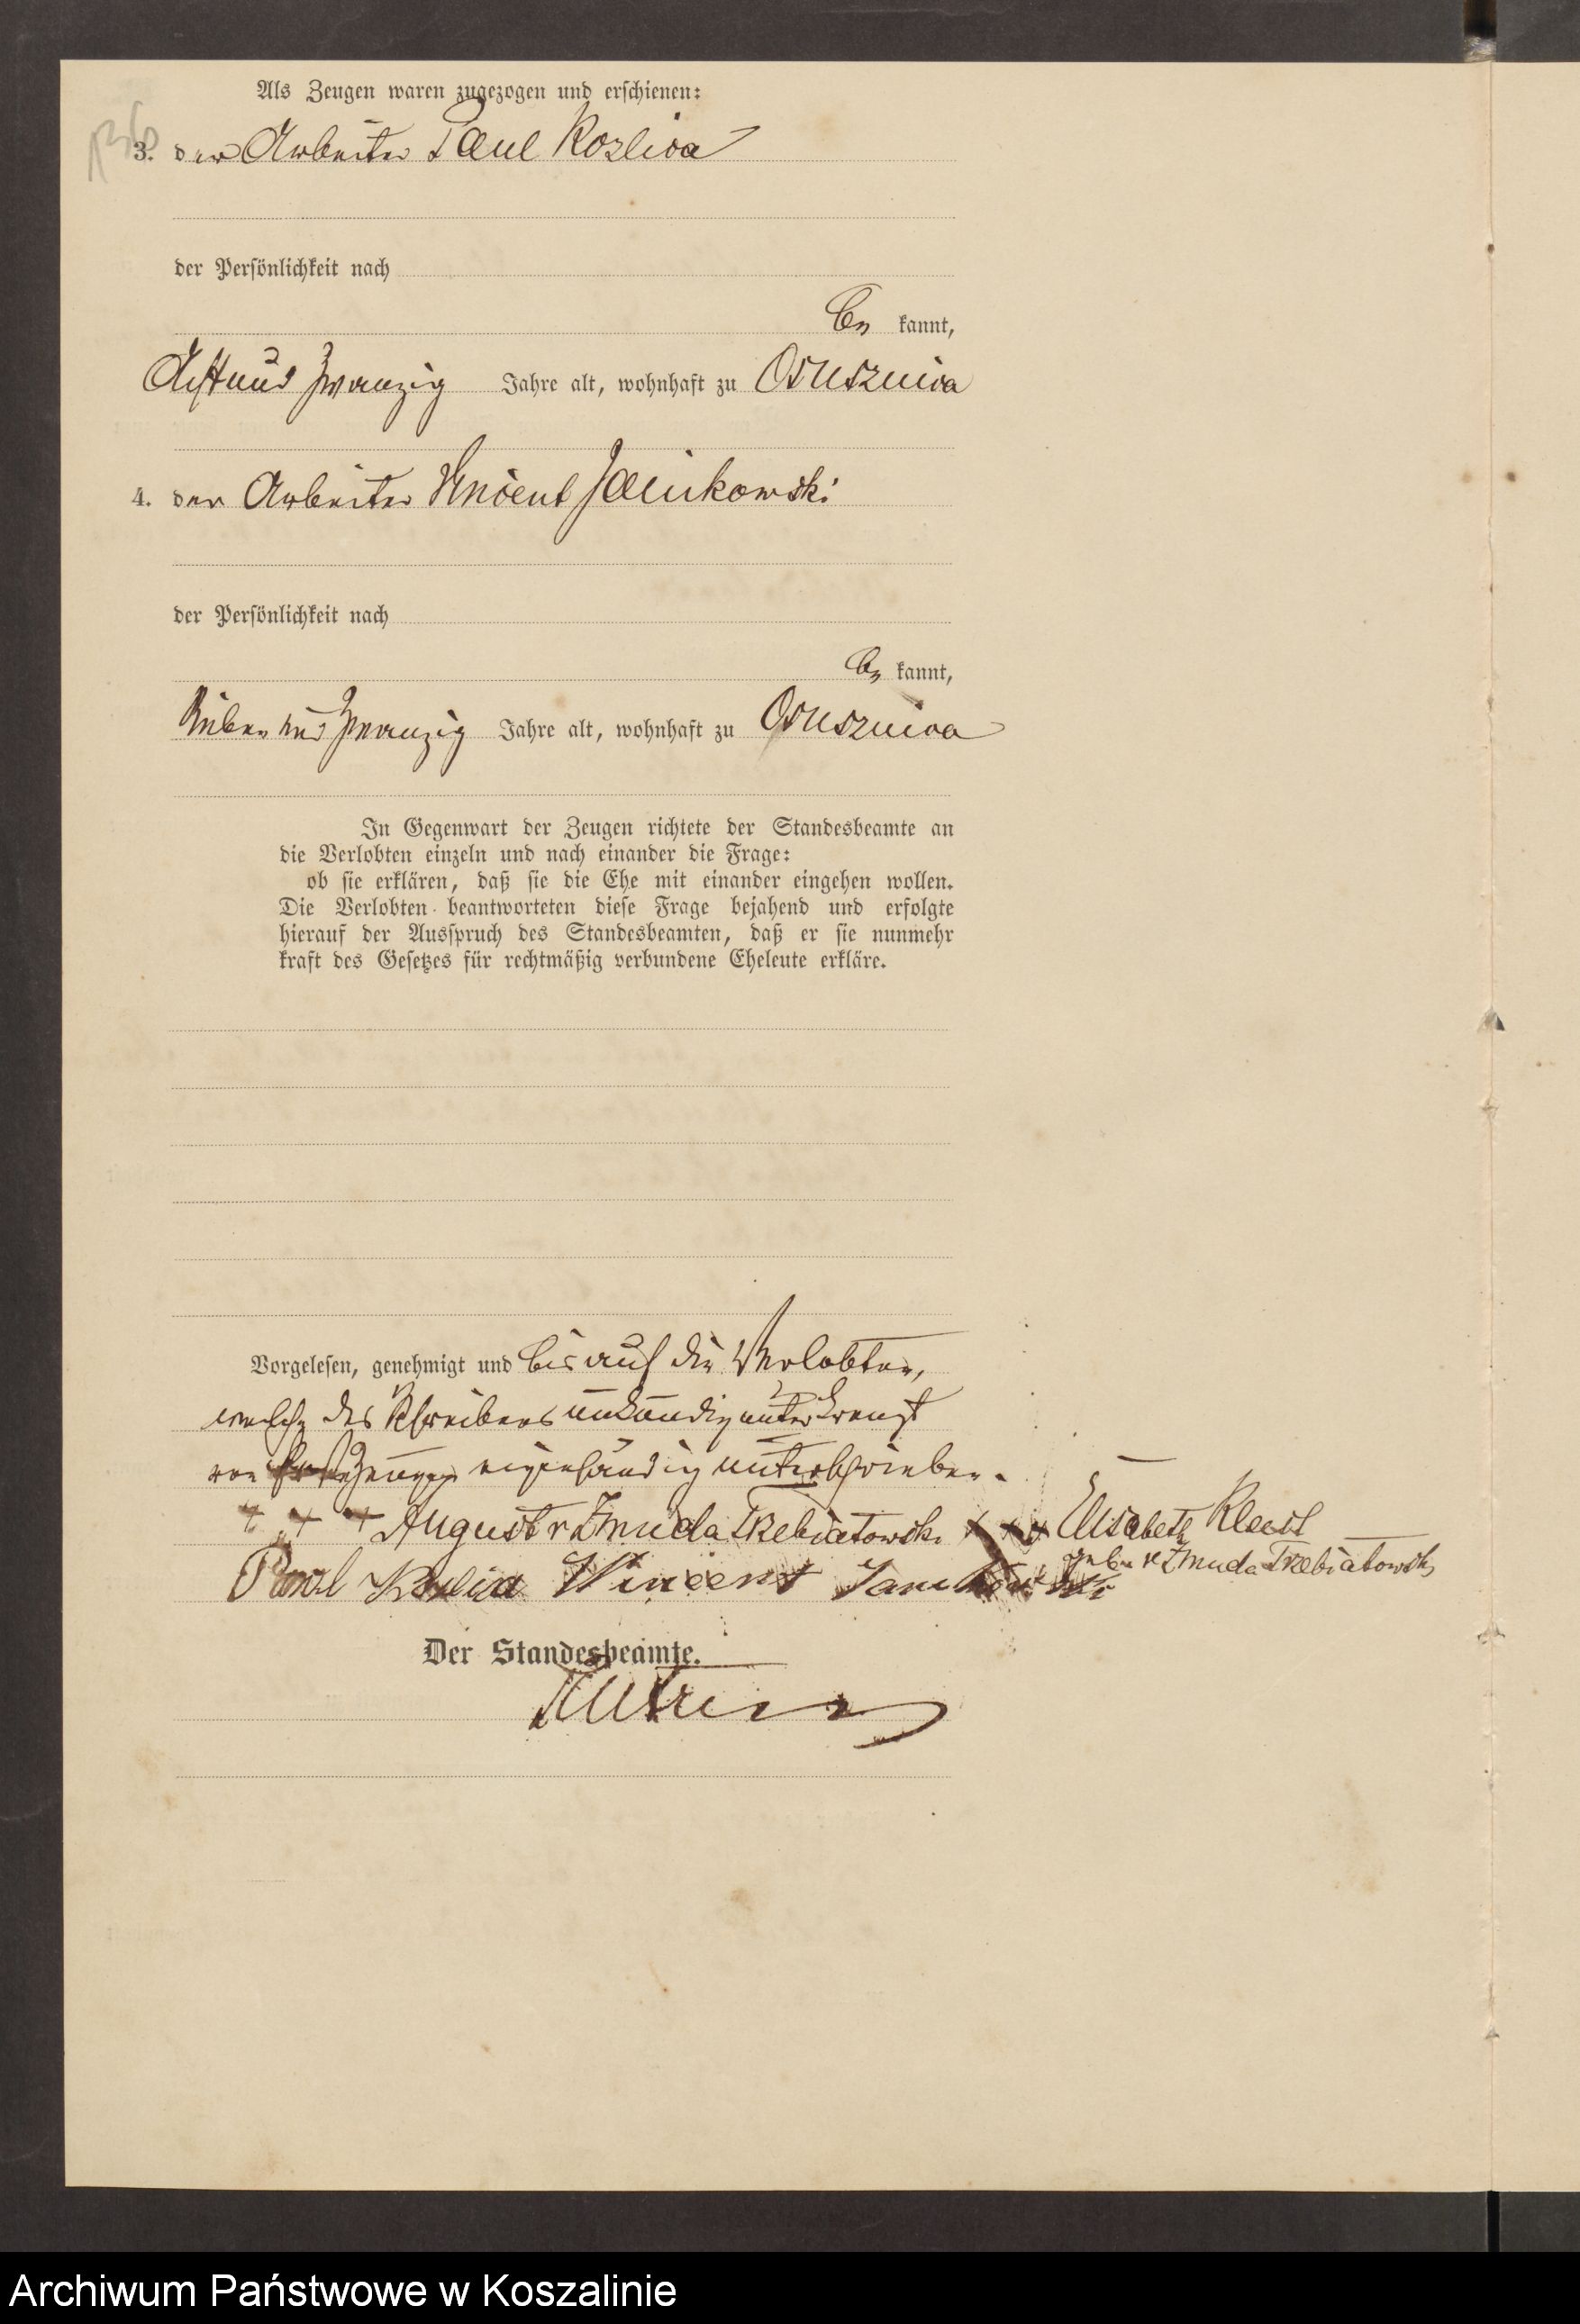 136
Als Zeugen waren zugezogen und erschienen:
3. der Arbeiter Paul Kozliva
der Persönlichkeit nach
be kannt,
Acht und zwanzig Jahre alt, wohnhaft zu Ossusznica
4. der Arbeiter Vincent Janikowski
der Persönlichkeit nach
be kannt,
Sieben und zwanzig Jahre alt, wohnhaft zu Ossusznica
In Gegenwart der Zeugen richtete der Standesbeamte an
die Verlobten einzeln und nach einander die Frage:
ob sie erklären, daß sie die Ehe mit einander eingehen wollen.
Die Verlobten beantworteten diese Frage bejahend und erfolgte
hierauf der Ausspruch des Standesbeamten, daß er sie nunmehr
kraft des Gesetzes für rechtmäßig verbundene Eheleute erkläre.
Vorgelesen, genehmigt und bis auf die Verlobten,
welche des Schreibens unkundig unterkreuzt
von Zeugen eigenhändig unterschrieben.
+ + + August v Zmuda Trzebiatowski + + + Elisabeth Kleist
geb. v Zmuda Trzebiatowski
Paul Vincent Janikowski
Der Standesbeamte.
Archiwum Państwowe w Koszalinie